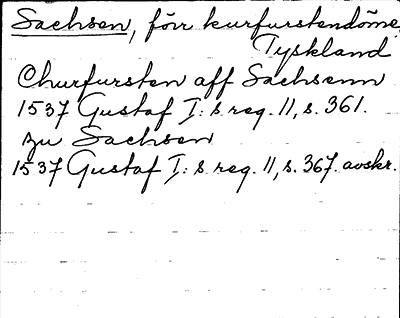 Sachsen, förr kurfurstendöme,
Tyskland
Churfursten aff Sachsenn
1537 Gustaf I:s reg. 11, s. 361.
zu Sachsen
1537 Gustaf I:s reg. 11, s. 367. avskr.